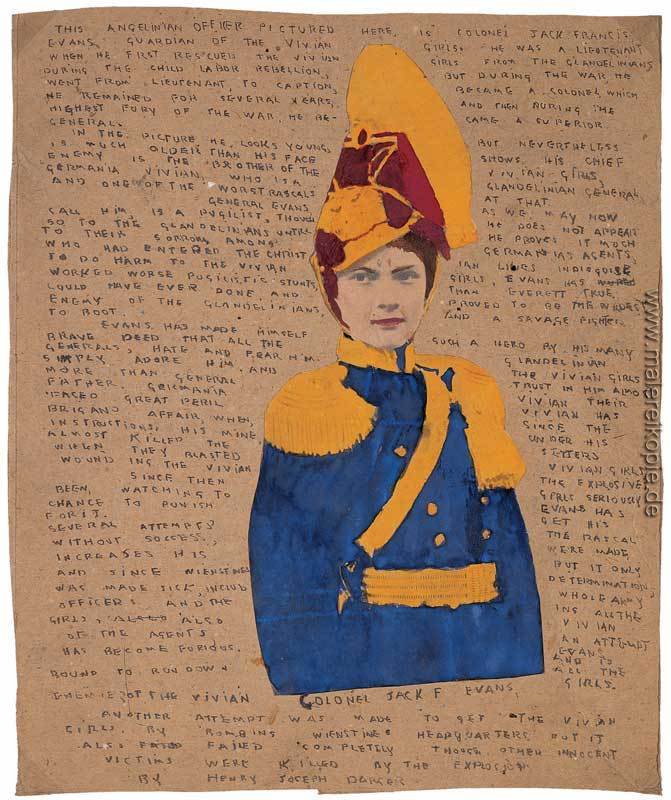 THIS ANGELINIAN OFFICER PICTURED HERE, IS COLONEL JACK FRANCIS
EVANS, GUARDIAN OF THE VIVIAN GIRLS. HE WAS A LIEUTENANT
WHEN HE FIRST RESCUED THE VIVIAN GIRLS FROM THE GLANDELINIANS
DURING THE CHILD LABOR REBELLION, BUT DURING THE WAR HE
WENT FROM LIEUTENANT, TO CAPTION, BECAME A COLONEL WHICH
HE REMAINED FOR SEVERAL YEARS, AND THEN DURING THE
HIGHEST FURY OF THE WAR, HE BE- CAME A SUPERIOR
GENERAL.
IN THE PICTURE HE LOOKS YOUNG, BUT NEVERTHELESS
IS MUCH OLDER THAN HIS FACE SHOWS. HIS CHIEF
ENEMY IS THE BROTHER OF THE VIVIAN GIRLS,
GERMANIA VIVIAN, WHO IS A GLANDELINIAN GENERAL
AND ONE OF THE WORST RASCALS AT THAT.
GENERAL EVANS AS WE MAY NOW
CALL HIM, IS A PUGILIST, THOUGH HE DOES NOT APPEAR
SO TO THE GLANDELINIANS UNTIL HE PROVES IT MUCH
TO THEIR SORROW, AMONG GERMANIAS AGENTS,
WHO HAD ENTERED THE CHRIST IAN LINES INDISGUISE
TO DO HARM TO THE VIVIAN GIRLS, EVANS HAS
WORKED WORSE PUGILISTIC STUNTS, THAN EVERETT TRUE,
COULD HAVE EVER DONE AND PROVED TO BE THE
ENEMY OF THE GLANDELINIANS, AND A SAVAGE FIGHTER
TO BOOT.
EVANS HAS MADE HIMSELF SUCH A HERO BY HIS MANY
BRAVE DEED THAT ALL THE GLANDELINIAN
GENERALS, HATE AND FEAR HIM. THE VIVIAN GIRLS
SIMPLY ADORE HIM, AND TRUST IN HIM ALSO
MORE THAN GENERAL VIVIAN THEIR
FATHER. GERMANIA VIVIAN HAS
FACED GREAT PERIL SINCE THE
BRIGAND AFFAIR, WHEN, UNDER HIS
INSTRUCTIONS, HIS MINE SETTERS
ALMOST KILLED THE VIVIAN GIRLS
WHEN THEY BLASTED THE EXPLOSIVE
WOUNDING THE VIVIAN GIRLS SERIOUSLY
SINCE THEN EVANS HAS
BEEN, WATCHING TO GET HIS
CHANCE TO PUNISH THE RASCAL
FOR IT.
SEVERAL ATTEMPTS WERE MADE
WITHOUT SUCCESS, BUT IT ONLY
INCREASES HIS DETERMINATION,
AND SINCE WIENSTINES WHOLE ARMY
WAS MADE SICK, INCLUD ING ALL THE
OFFICERS AND THE VIVIAN
GIRLS, ALSO ALSO AN ATTEMPT
OF THE AGENTS EVANS
HAS BECOME FURIOUS. AND IS
BOUND TO RUN DOWN ALL THE
ENEMIES OF THE VIVIAN GIRLS.
COLONEL JACK F EVANS.
ANOTHER ATTEMPT WAS MADE TO GET THE VIVIAN
GIRLS BY BOMBING WIENSTINES HEADQUARTERS BUT IT
ALSO FAILED COMPLETELY THOUGH OTHER INNOCENT
VICTIMS WERE KILLED BY THE EXPLOSION
BY HENRY JOSEPH DARGER
www.malereikopie.de